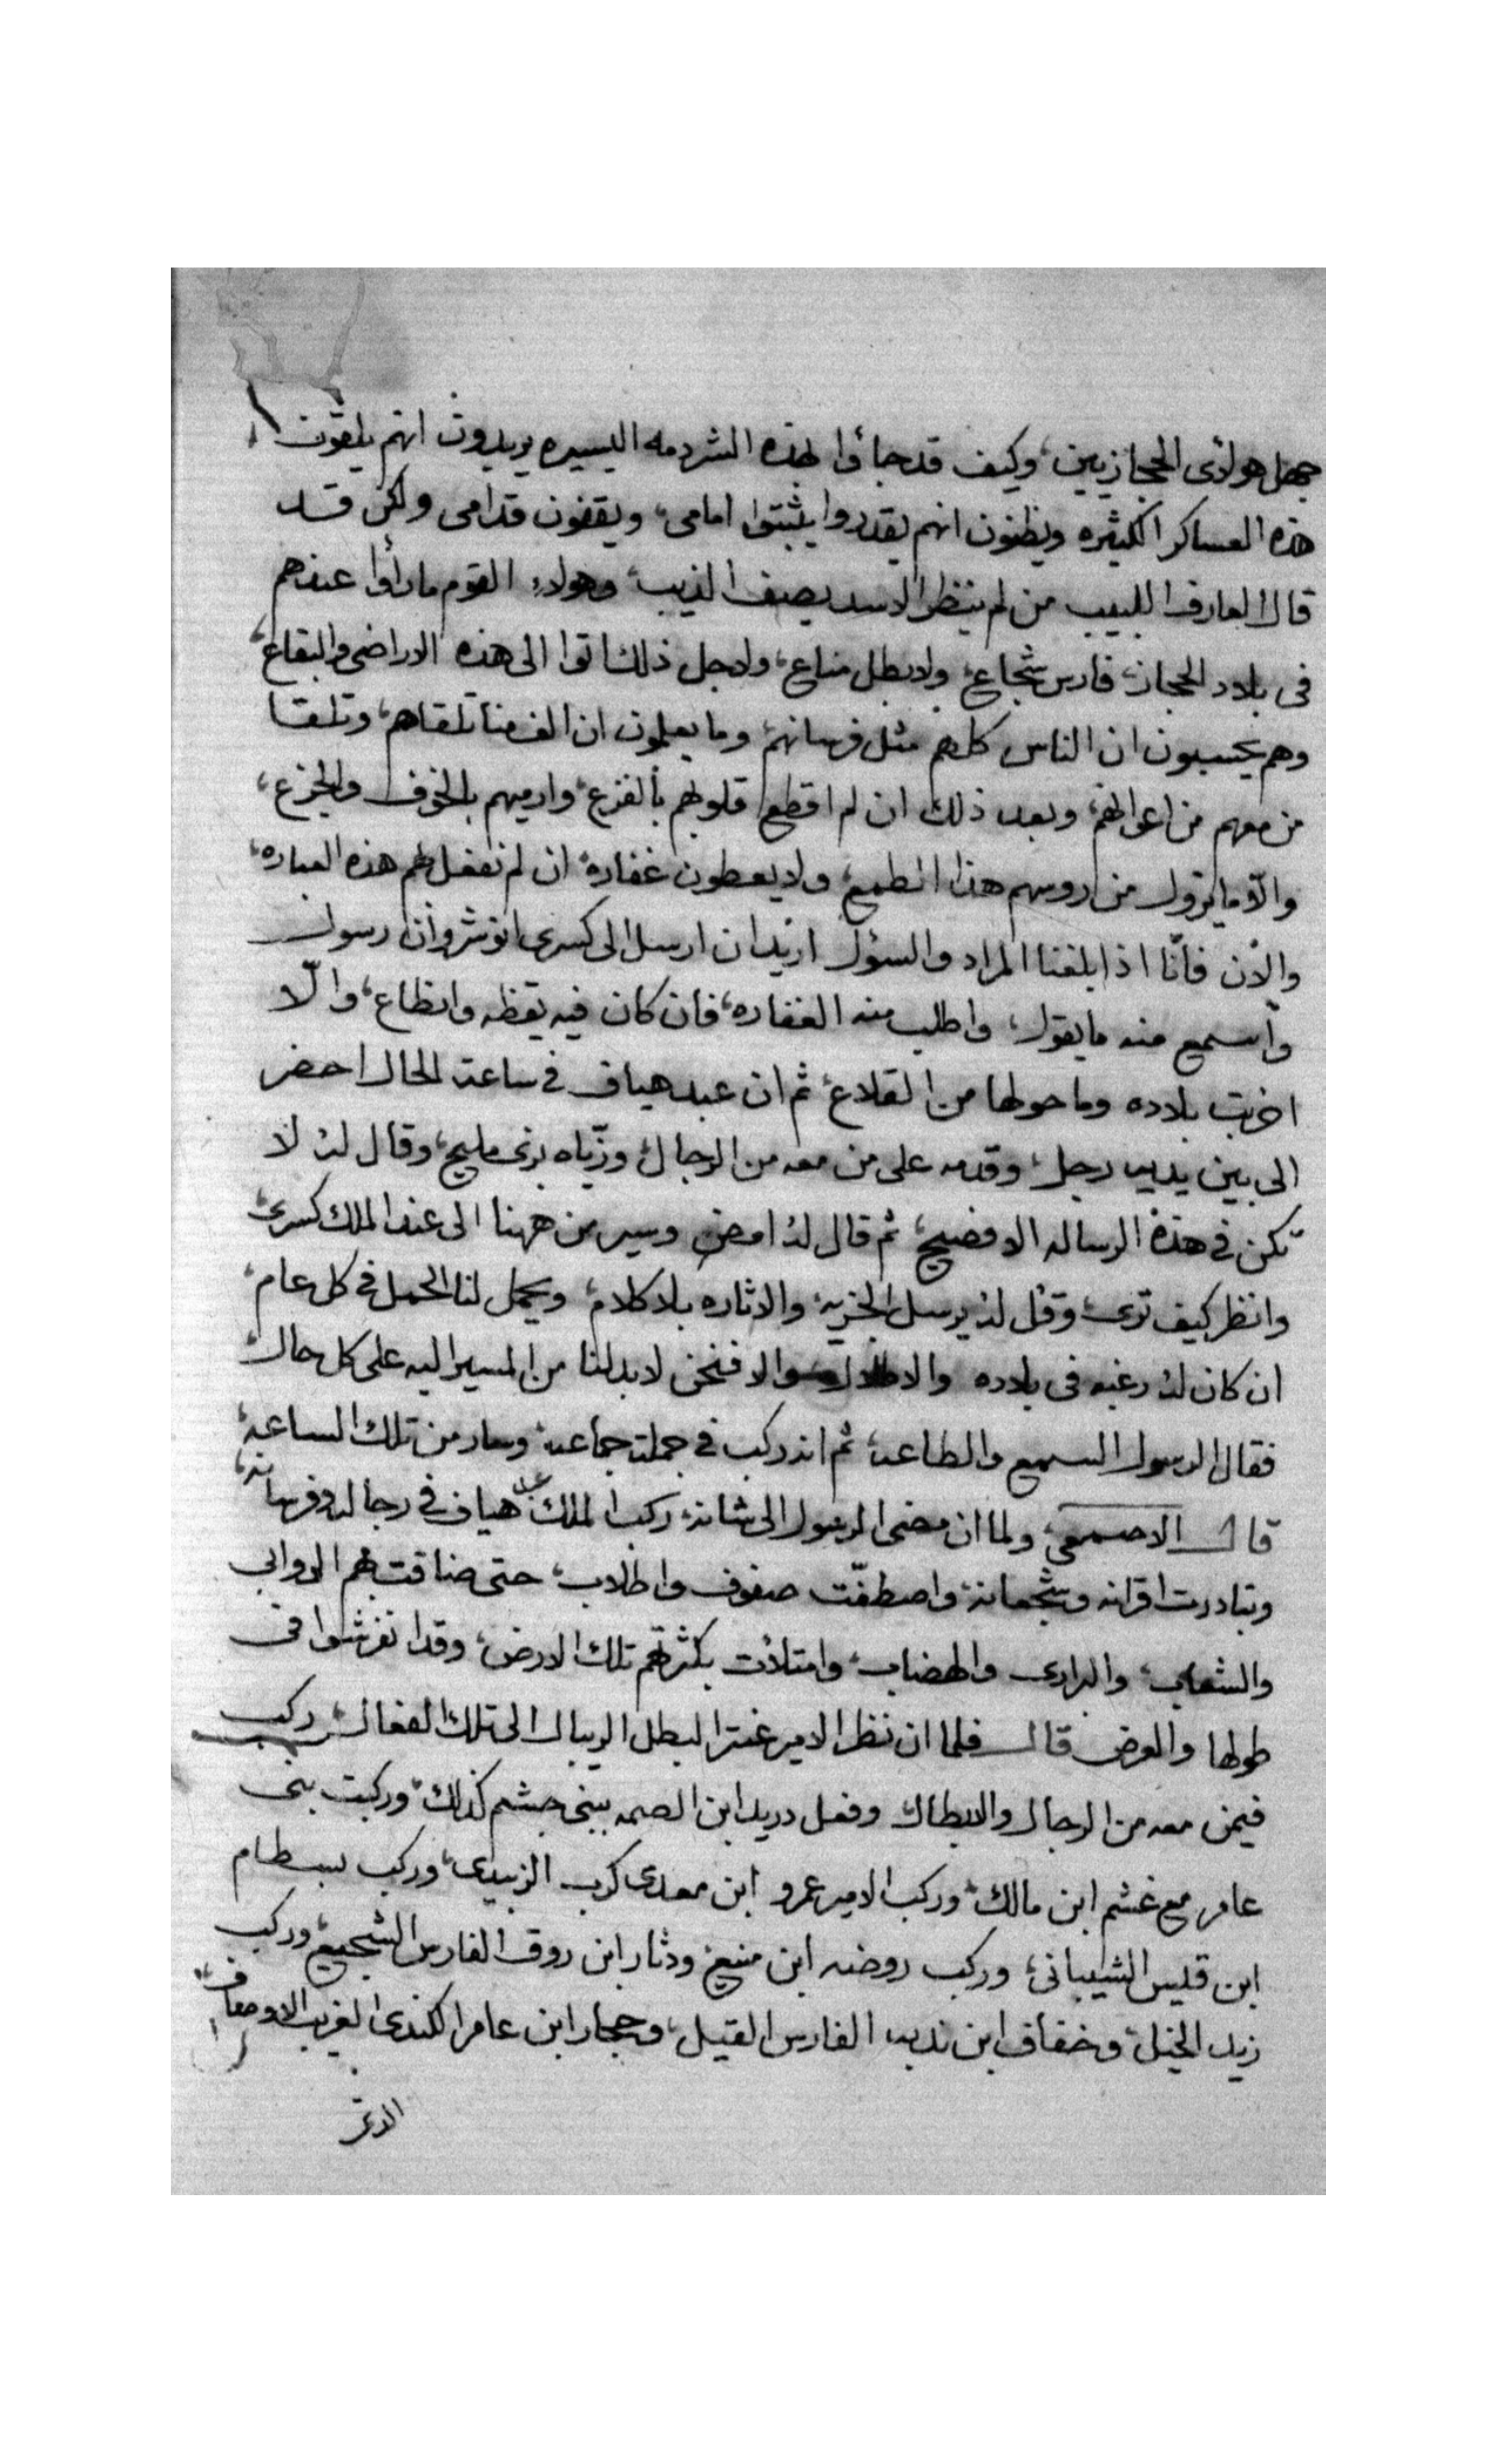 جهل هولاى الحجازيين، وكيف قد جاؤا بهذه الشردمه اليسيره يريدون انهم يلقون
هذه العساكر الكثيره ويظنون انهم يقدروا يثبتوا امامى، ويقفون قدامى ولكن قد
قال العارف اللبيب من لم ينظر الاسد يصف الذيب، وهولاء القوم ما رأوا عندهم
فى بلاد الحجاز، فارس شجاع، ولا بطل مناع، ولاجل ذلك اتوا الى هذه الاراضى والبقاع،
وهم يحسبون ان الناس كلهم مثل فرسانهم، وما يعلمون ان الف منا تلقاهم، وتلقا
من معهم من اعوانهم، وبعد ذلك ان لم اقطع قلوبهم بالفزع، وارميهم بالخوف والجزع،
والّا ما يزول من روسهم هذا الطمع، ولا يعطون غفاره ان لم نفعل لهم هذه العباره،
والآن فأنّا اذا بلغنا المراد والسؤل اريد ان ارسل الى كسرى انوشروان رسول
وأسمع منه ما يقول، واطلب منه الغفاره، فان كان فيه يقظه وانطاع، والّا
اخربت بلاده وما حولها من القلاع، ثم ان عبد هياف فى ساعة الحال احضر
الى بين يديه رجل، وقدمه على من معه من الرجال، وزيّاه بزى مليح، وقال له لا
تكن فى هذة الرساله الا فصيح، ثم قال له امض وسير من ههنا الى عند الملك كسرى،
وانظر كيف ترى، وقل له يرسل الجزيه، والاثاره بلا كلام، ويحمل لنا الحمل فى كل عام،
ان كان له رغبه فى بلاده والاطلال والا فنحن لا بد لنا من المسير اليه على كل حال،
فقال الرسول السمع والطاعه، ثم انه ركب فى جملة جماعه، وسار من تلك الساعه،
قال الاصمعى، ولما ان مضى الرسول الى شانه، ركب الملك عبد هياف فى رجاله وفرسانه،
وتبادرت اقرانه وشجعانه، واصطفّت صفوف واطلاب، حتى ضاقت بهم الروابى
والشعاب، والبرارى والهضاب، وامتلأت بكثرتهم تلك الارض، وقد انفرشوا فى
طولها والعرض قال فلما ان نظر الامير عنتر البطل الريبال الى تلك الفعال، ركب
فيمن معه من الرجال والابطال، وفعل دريد ابن الصمه ببنى جشم كذلك، وركبت بنى
عامر مع غشم ابن مالك، وركب الامير عمرو ابن معدى كرب الزبيدى، وركب بسطام
ابن قليس الشيبانى، وركب روضه ابن منيع، ودثار ابن روق الفارس الشجيع، وركب
زيد الخيل، وخفاف ابن ندبه الفارس القيل، وحجار ابن عامر الكندى الغريب الاوصاف،